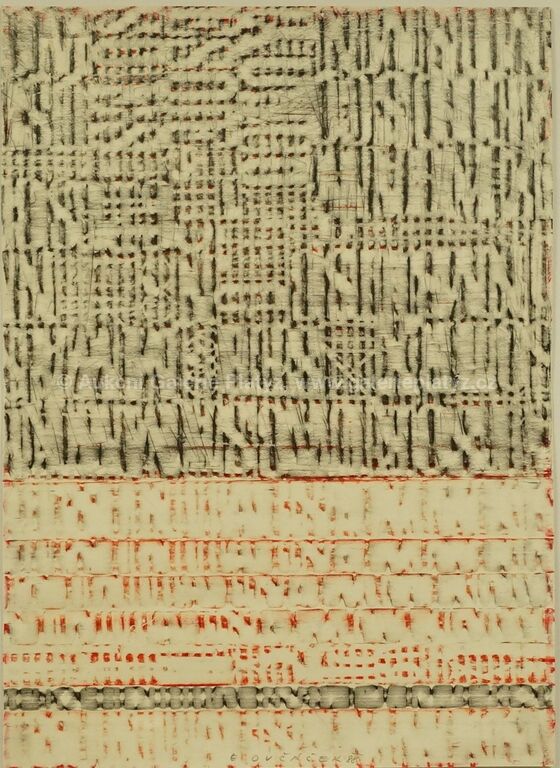 © Aukční Galerie Platýz, www.galerieplatyz.cz
E OVČÁČEK